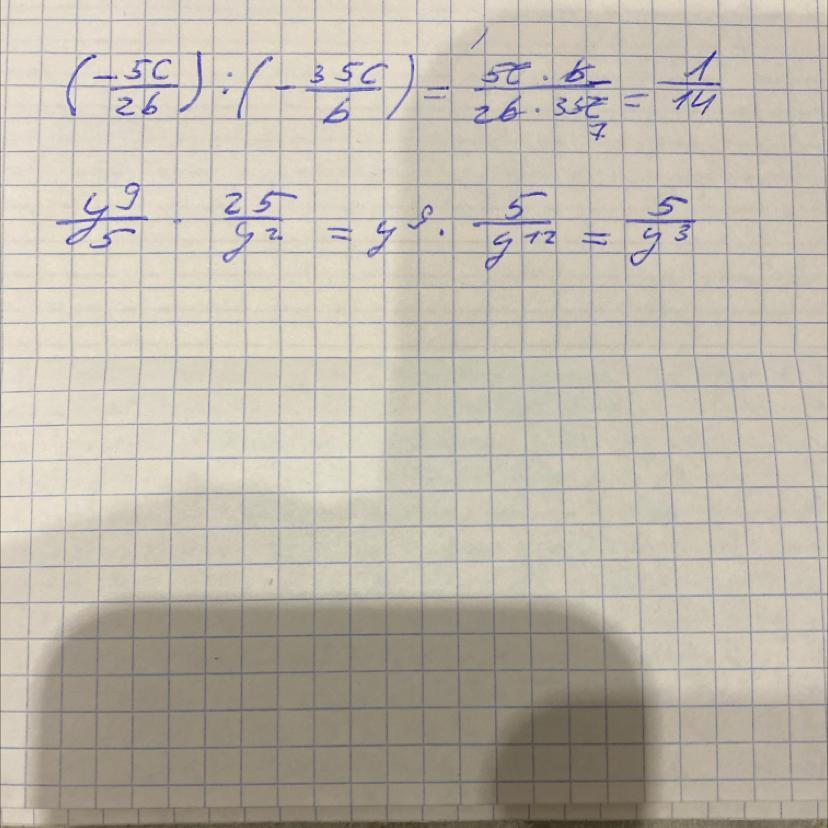 (-5c/2b) : (-35c/b) = 5c · b / 2b · 35c 7 = 1/14
y⁹/5 · 25/y² = y⁹ · 5/y¹² = 5/y³